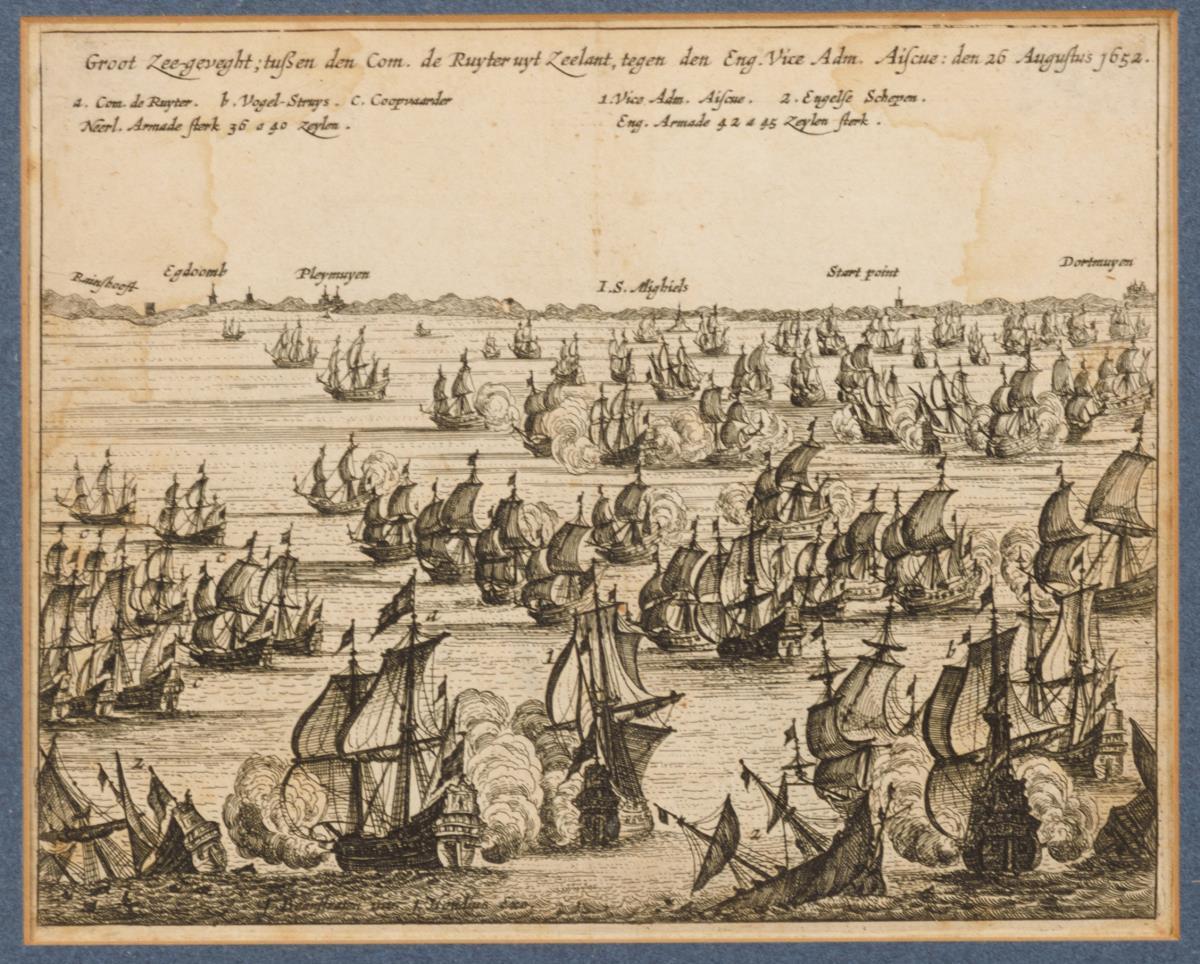 Groot Zee-geveght; tußen den Com. de Ruyter uyt Zeelant, tegen den Eng. Vice Adm. Aiſcue: den 26 Auguſtus 1652.
a. Com. de Ruyter. b. Vogel-Struys. c. Coopvaarder
Neerl. Armade ſterk 36 a 40 zeylen.
1. Vice Adm. Aiſcue. 2. Engelſe Schepen.
Eng. Armade 42 a 45 Zeylen ſterk.
Rainſhooft
Egdoomb
Pleymuyen
I. S. Mighiels
Start point
Dortmuyen
c
c
c
a
1
b
2
2